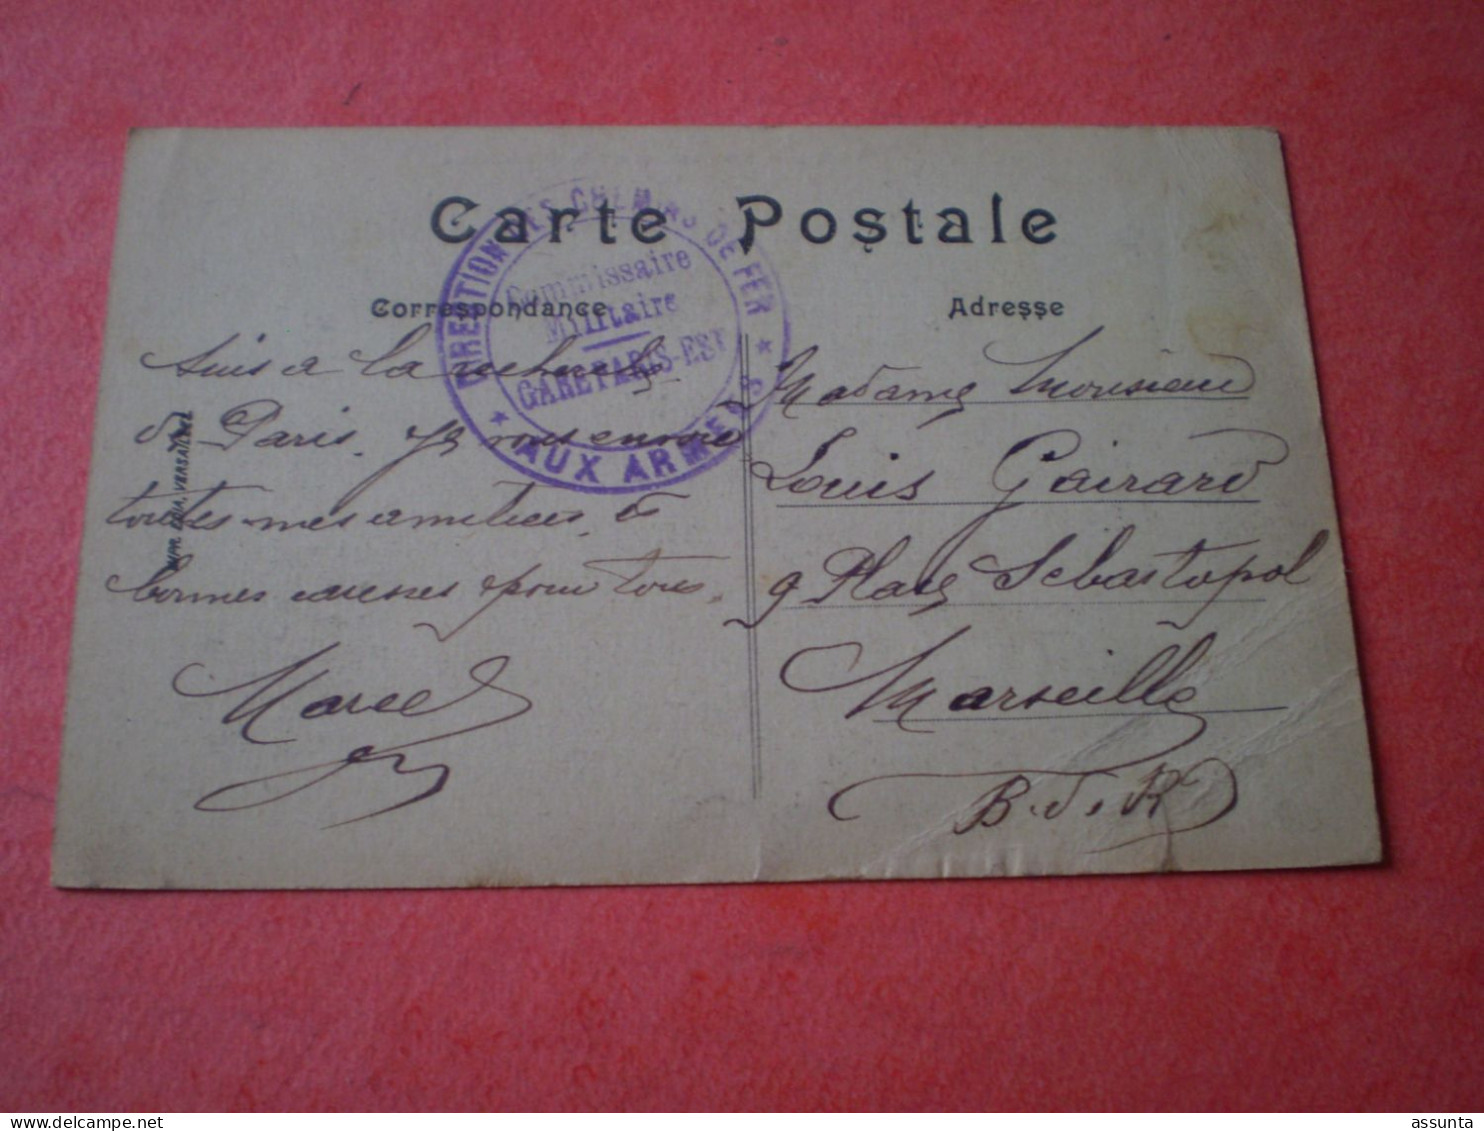 Carte Postale
DIRECTION DES CHEMINS DE FER
★ AUX ARMÉES ★
Commissaire
Militaire
GARE PARIS-EST
Correspondance
Adresse
Suis a la recherche
de Paris. Je vous envoie
toutes mes amitiées. &
bonnes caresses pour tous.
Marcel
Madame Monsieur
Louis Gairard
9 Place Sébastopol
Marseille
B. d. R
VERSAILLES
assunta